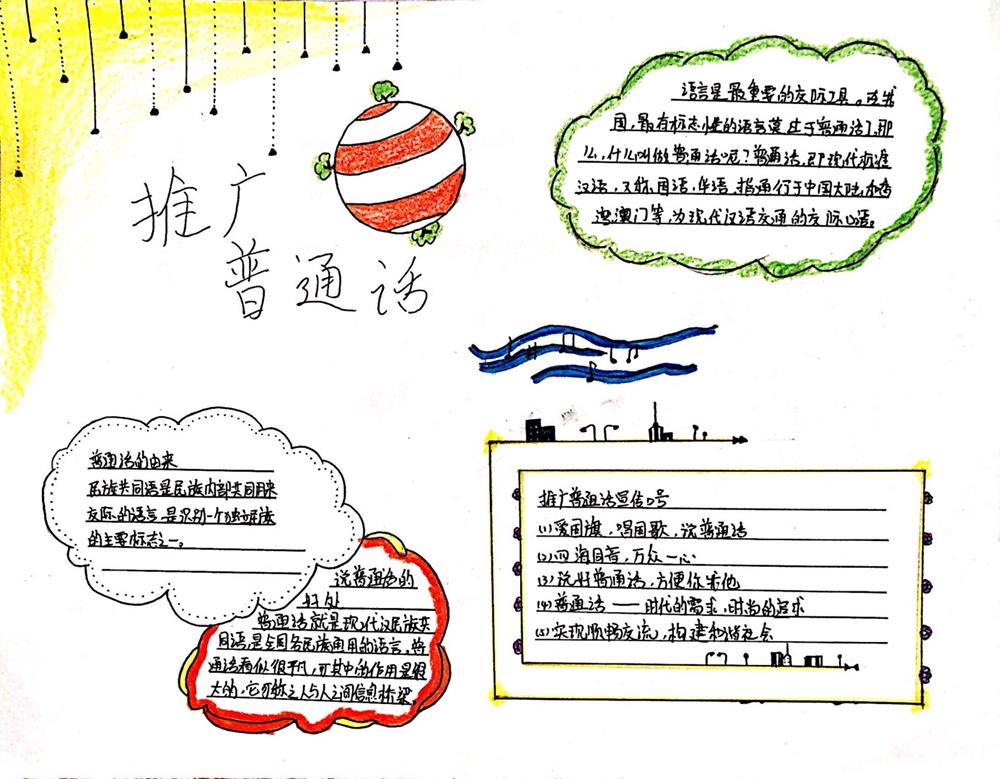 推广
普通话
语言是最重要的交际工具。在我
国,最有标志性的语言莫过于普通话了,那
么,什么叫做普通话呢?普通话,即现代标准
汉语,又称国语,华语,指通行于中国大陆,和香
港澳门等,为现代汉语交通的交际口语。
普通话的由来
民族共同语是民族内部共同用来
交际的语言,是识别一个独立民族
的主要标志之一。
说普通话的
好处
普通话就是现代汉民族共
同语,是全国各民族通用的语言。普
通话看似很平凡,可其中的作用是很
大的,它可称之人与人之间信息桥梁。
推广普通话宣传口号
(1)爱国旗,唱国歌,说普通话
(2)四海同音,万众一心
(3)说好普通话,方便你我他
(4)普通话——时代的需求,时尚的追求
(5)实现顺畅交流,构建和谐社会